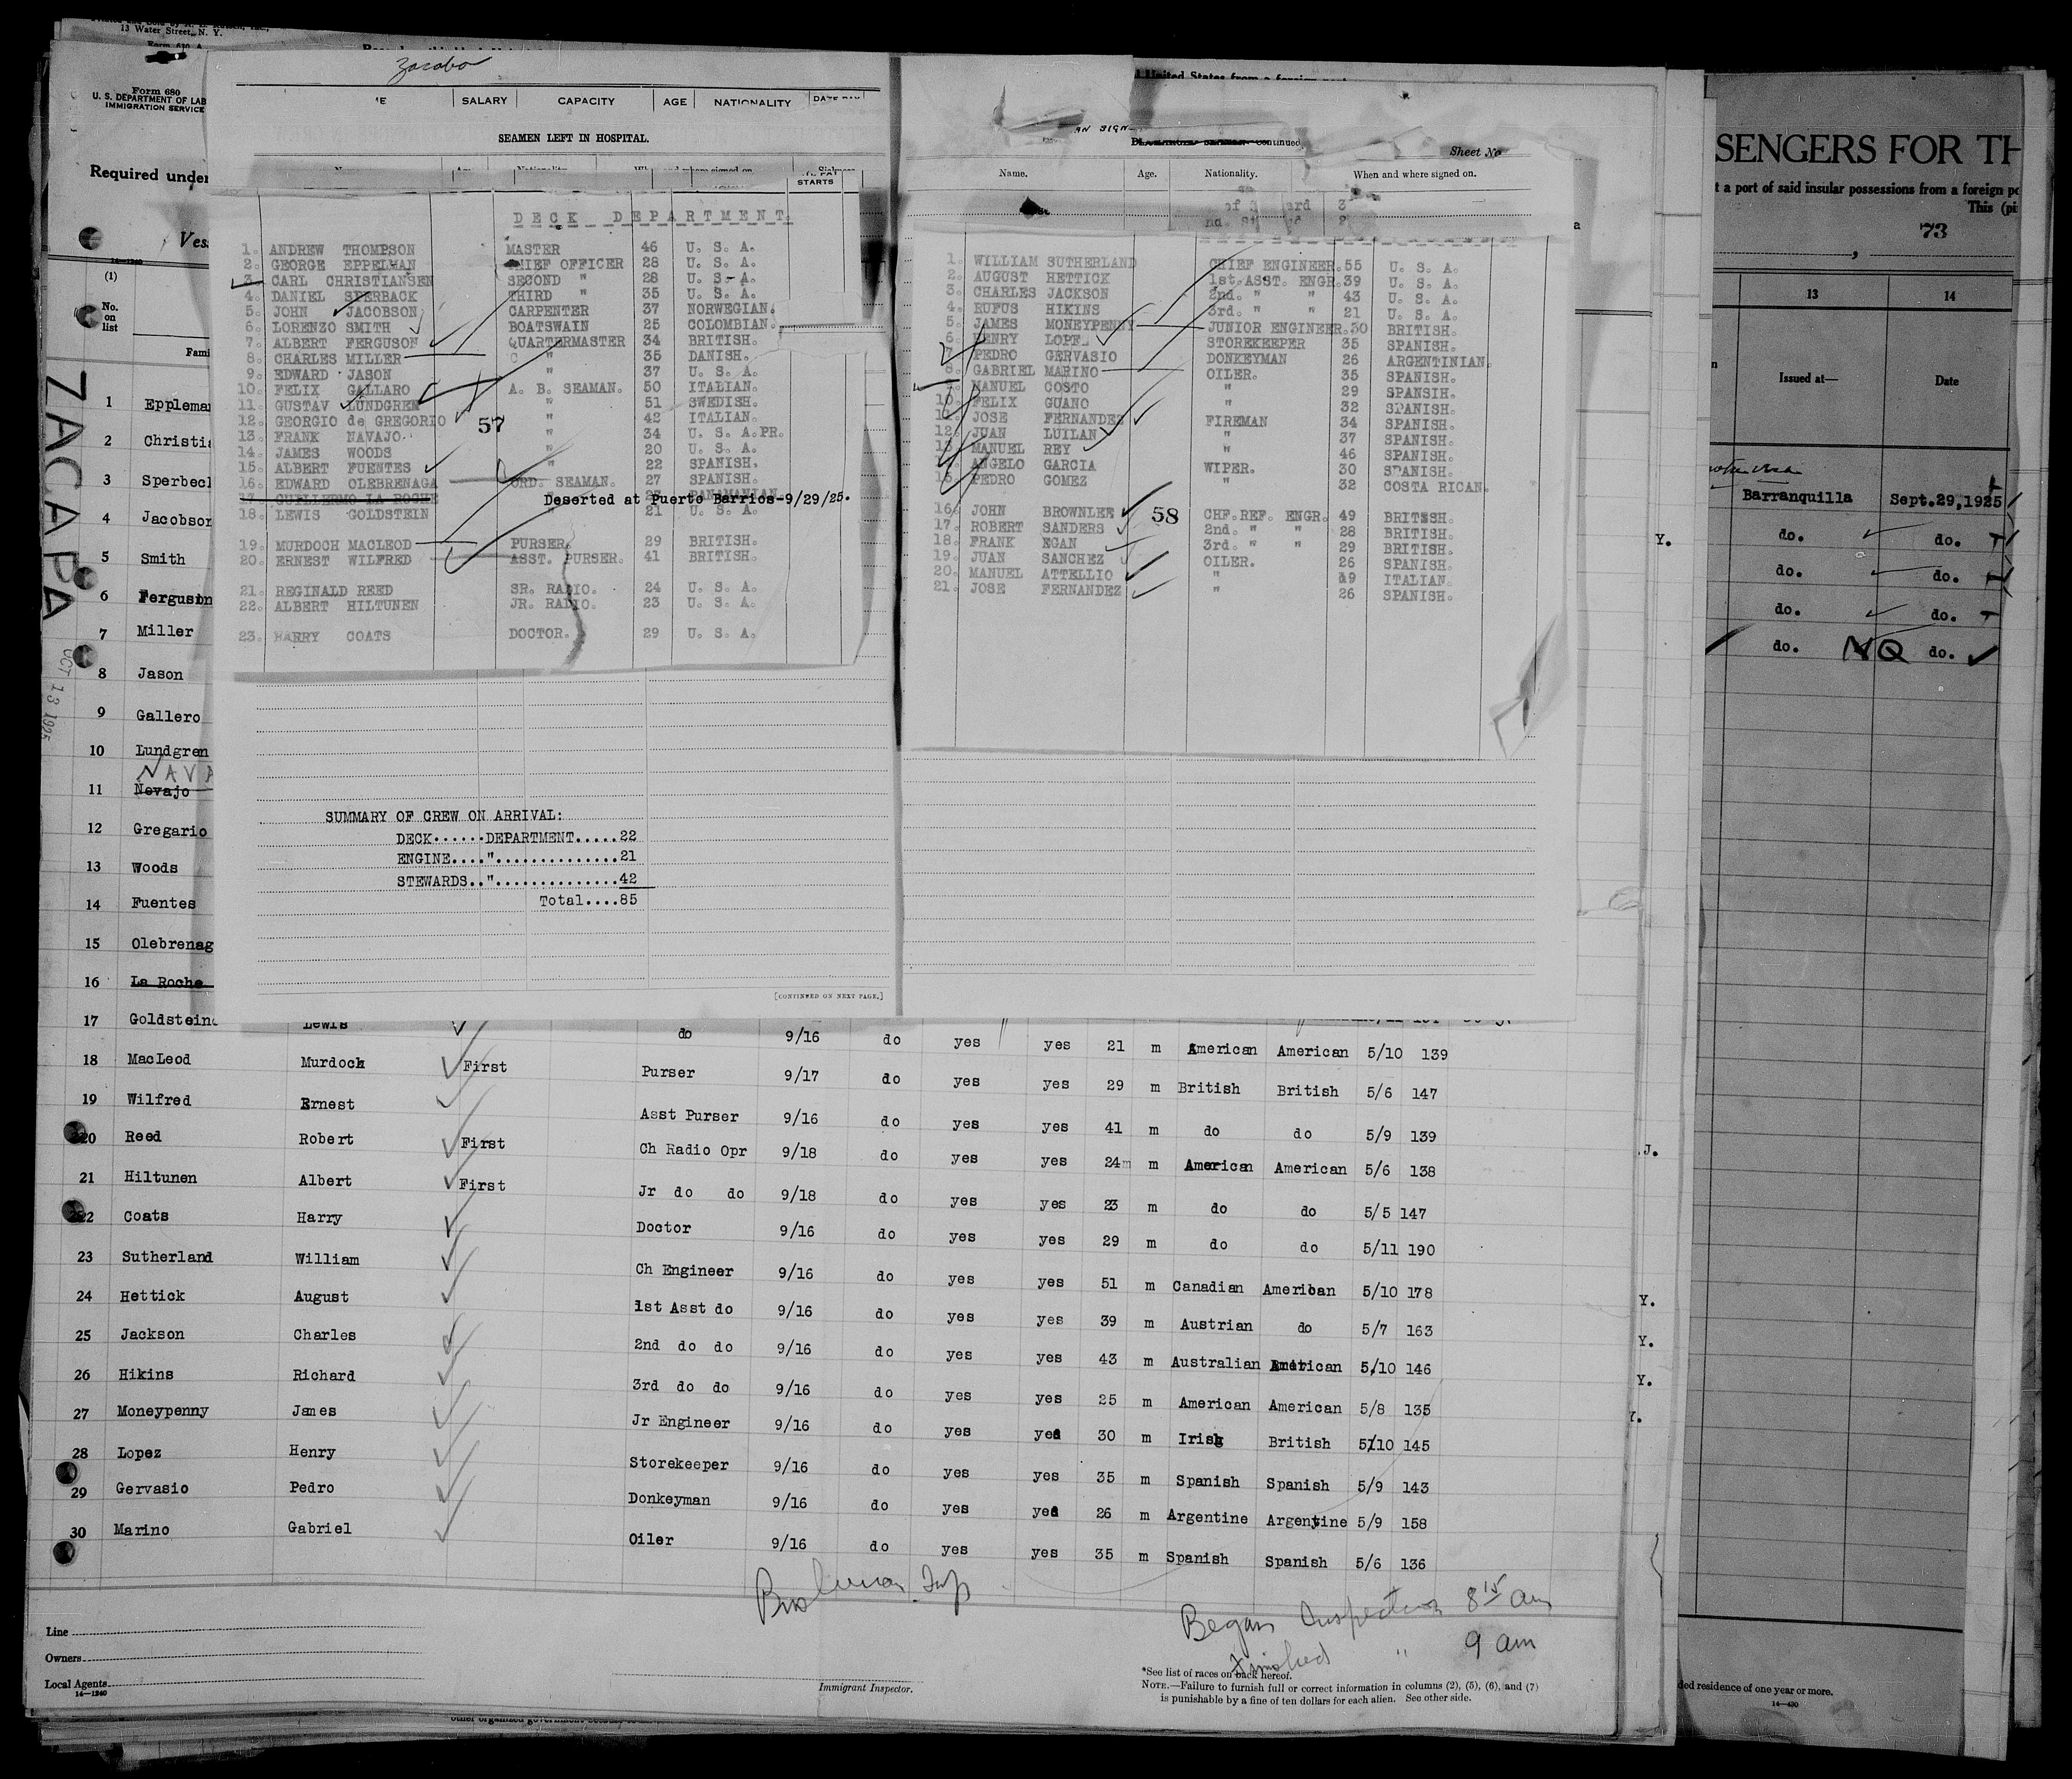 13 Water Street, N. Y.
Form 630 A
Form 680
U. S. DEPARTMENT OF LAB
IMMIGRATION SERVICE
Required under
Ves
14-1240
(1)
No.
on
list
Fami
ZACAPA
OCT 13 1925
1 Eppleman
2 Christia
3 Sperbeck
4 Jacobson
5 Smith
6 Ferguson
7 Miller
8 Jason
9 Gallero
10 Lundgren
NAVA
11 Nevajo
12 Gregario
13 Woods
14 Fuentes
15 Olebrenag
16 La Roche
SALARY CAPACITY AGE NATIONALITY
SEAMEN LEFT IN HOSPITAL.
STARTS
DECK DEPARTMENT.
1. ANDREW THOMPSON MASTER 46 U. S. A.
2. GEORGE EPPELMAN CHIEF OFFICER 28 U. S. A.
3. CARL CHRISTIANSEN SECOND " 28 U. S. A.
4. DANIEL SPERBACK THIRD " 35 U. S. A.
5. JOHN JACOBSON CARPENTER 37 NORWEGIAN.
6. LORENZO SMITH BOATSWAIN 25 COLOMBIAN.
7. ALBERT FERGUSON QUARTERMASTER 34 BRITISH.
8. CHARLES MILLER " 35 DANISH.
9. EDWARD JASON " 37 U. S. A.
10. FELIX GALLARO A. B. SEAMAN. 50 ITALIAN.
11. GUSTAV LUNDGREN " 51 SWEDISH.
12. GEORGIO de GREGORIO " 42 ITALIAN.
57
13. FRANK NAVAJO. " 34 U. S. A.PR.
14. JAMES WOODS " 20 U. S. A.
15. ALBERT FUENTES " 22 SPANISH.
16. EDWARD OLEBRENAGA ORD. SEAMAN. 27 SPANISH.
17. GUELLERMO LA ROCHE PANAMANIAN.
Deserted at Puerto Barrios-9/29/25.
18. LEWIS GOLDSTEIN " 21 U. S. A.
19. MURDOCH MACLEOD PURSER. 29 BRITISH.
20. ERNEST WILFRED ASST. PURSER. 41 BRITISH.
21. REGINALD REED SR. RADIO. 24 U. S. A.
22. ALBERT HILTUNEN JR. RADIO. 23 U. S. A.
23. HARRY COATS DOCTOR. 29 U. S. A.
SUMMARY OF CREW ON ARRIVAL:
DECK......DEPARTMENT.....22
ENGINE...."...............21
STEWARDS.."...............42
Total....85
[CONTINUED ON NEXT PAGE.]
Continued
Sheet No
Name. Age. Nationality. When and where signed on.
1. WILLIAM SUTHERLAND CHIEF ENGINEER. 55 U. S. A.
2. AUGUST HETTICK 1st.ASST. ENGR. 39 U. S. A.
3. CHARLES JACKSON 2nd. " " 43 U. S. A.
4. RUFUS HIKINS 3rd. " " 21 U. S. A.
5. JAMES MONEYPENNY JUNIOR ENGINEER. 30 BRITISH.
6. HENRY LOPE STOREKEEPER 35 SPANISH.
7. PEDRO GERVASIO DONKEYMAN 26 ARGENTINIAN.
8. GABRIEL MARINO OILER. 35 SPANISH.
9. MANUEL COSTO " 29 SPANSIH.
10. FELIX GUANO " 32 SPANISH.
11. JOSE FERNANDEZ FIREMAN 34 SPANISH.
12. JUAN LUILAN " 37 SPANISH.
13. MANUEL REY " 46 SPANISH.
14. ANGELO GARCIA WIPER. 30 SPANISH.
15. PEDRO GOMEZ " 32 COSTA RICAN.
58
16. JOHN BROWNLEE CHF.REF. ENGR. 49 BRITSH.
17. ROBERT SANDERS 2nd. " " 28 BRITISH.
18. FRANK EGAN 3rd. " " 29 BRITISH.
19. JUAN SANCHEZ OILER. 26 SPANISH.
20. MANUEL ATTELLIO " 19 ITALIAN.
21. JOSE FERNANDEZ " 26 SPANISH.
17 Goldstein Lewis do 9/16 do yes yes 21 m American American 5/10 139
18 MacLeod Murdock First Purser 9/17 do yes yes 29 m British British 5/6 147
19 Wilfred Ernest Asst Purser 9/16 do yes yes 41 m do do 5/9 139
20 Reed Robert First Ch Radio Opr 9/18 do yes yes 24 m American American 5/6 138
21 Hiltunen Albert First Jr do do 9/18 do yes yes 23 m do do 5/5 147
22 Coats Harry Doctor 9/16 do yes yes 29 m do do 5/11 190
23 Sutherland William Ch Engineer 9/16 do yes yes 51 m Canadian American 5/10 178
24 Hettick August 1st Asst do 9/16 do yes yes 39 m Austrian do 5/7 163
25 Jackson Charles 2nd do do 9/16 do yes yes 43 m Australian American 5/10 146
26 Hikins Richard 3rd do do 9/16 do yes yes 25 m American American 5/8 135
27 Moneypenny James Jr Engineer 9/16 do yes yes 30 m Irish British 5/10 145
28 Lopez Henry Storekeeper 9/16 do yes yes 35 m Spanish Spanish 5/9 143
29 Gervasio Pedro Donkeyman 9/16 do yes yes 26 m Argentine Argentine 5/9 158
30 Marino Gabriel Oiler 9/16 do yes yes 35 m Spanish Spanish 5/6 136
Began Inspection 8 15 am
Finished " 9 am
Line
Owners
Local Agents
14-1240
Immigrant Inspector.
*See list of races on back hereof.
NOTE.—Failure to furnish full or correct information in columns (2), (5), (6), and (7)
is punishable by a fine of ten dollars for each alien. See other side.
SENGERS FOR TH
t a port of said insular possessions from a foreign po
This (pi
73
13 14
Issued at— Date
Barranquilla Sept.29,1925
do. do.
do. do.
do. do.
do. NO do.
Y.
J.
Y.
Y.
Y.
Y.
ded residence of one year or more.
14-430